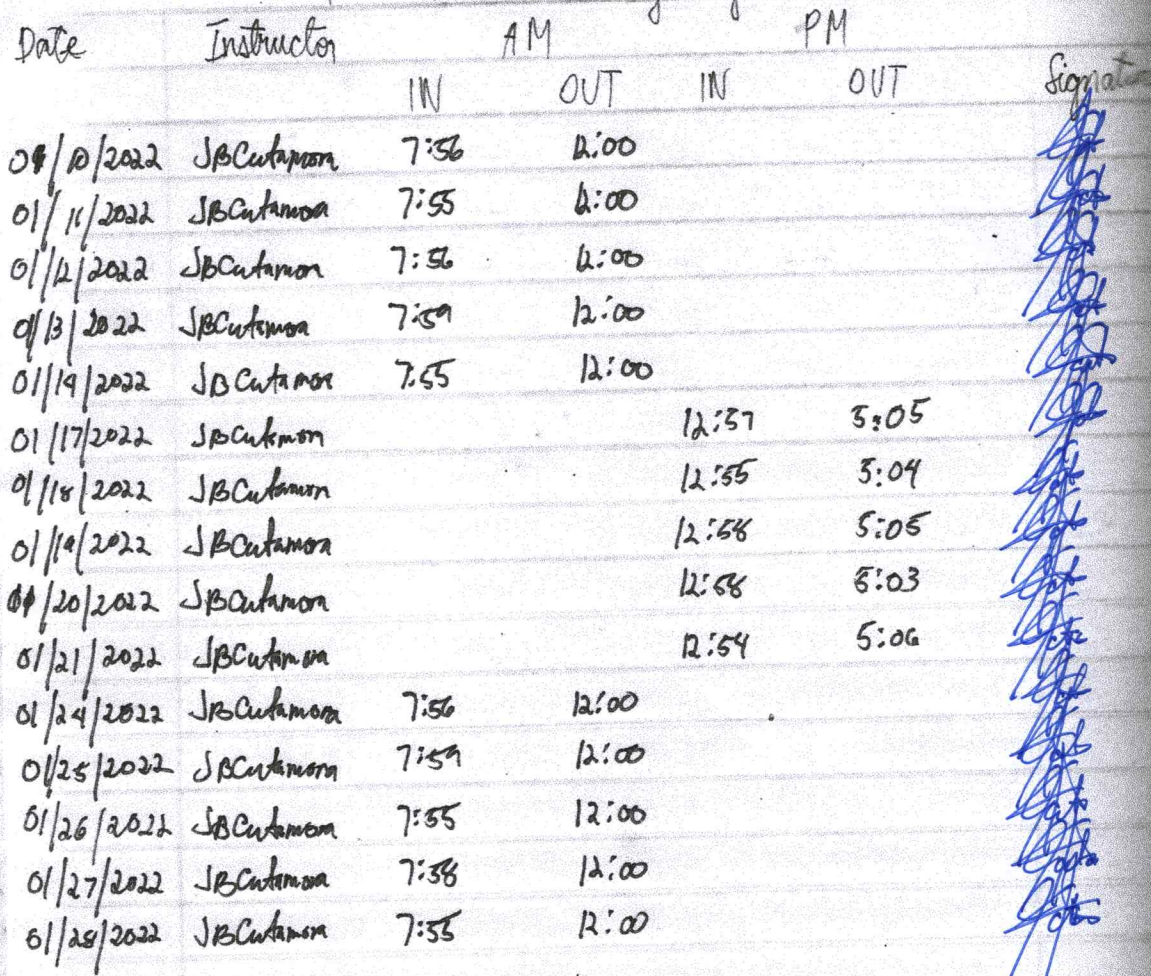 Date Instructor AM PM
IN OUT IN OUT Signature
01/10/2022 JBCutamora 7:56 12:00
01/11/2022 JBCutamora 7:55 12:00
01/12/2022 JBCutamora 7:56 12:00
01/13/2022 JBCutamora 7:59 12:00
01/14/2022 JBCutamora 7:55 12:00
01/17/2022 JBCutamora 12:57 5:05
01/18/2022 JBCutamora 12:55 5:04
01/19/2022 JBCutamora 12:58 5:05
01/20/2022 JBCutamora 12:58 5:03
01/21/2022 JBCutamora 12:54 5:06
01/24/2022 JBCutamora 7:56 12:00
01/25/2022 JBCutamora 7:59 12:00
01/26/2022 JBCutamora 7:55 12:00
01/27/2022 JBCutamora 7:58 12:00
01/28/2022 JBCutamora 7:55 12:00